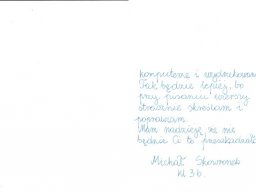 komputerze i wydrukowane
Tak będzie lepiej, bo
przy pisaniu wierszy
strasznie skreślam i
poprawiam.
Mam nadzieję że nie
będzie Ci to przeszkadzało
Michał Skowronek
kl 3b.